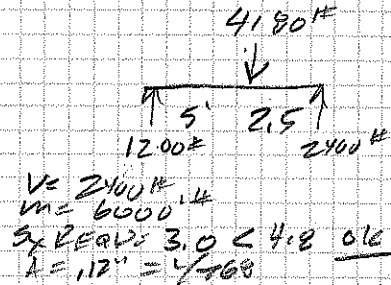 4180#
5' 2.5
1200# 2400#
V= 2400#
M= 6000'#
Sx REQ'D= 3.0 < 4.8 ok
Δ= .12" = L/768